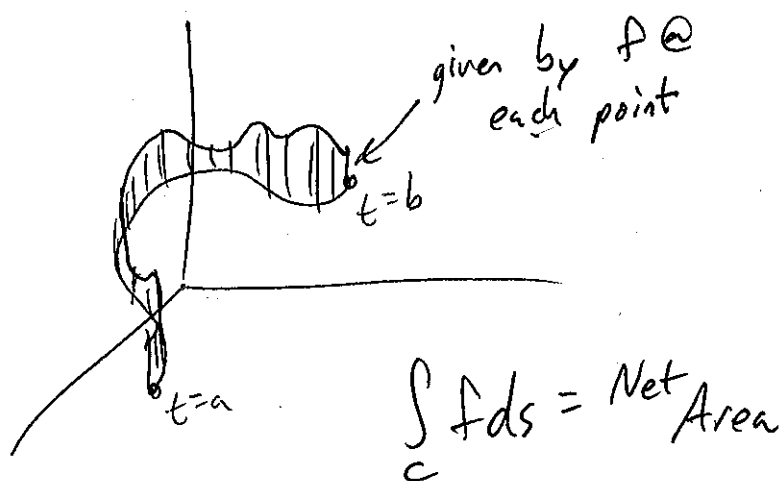 given by f @
each point
t=b
t=a
∫_C f ds = Net Area